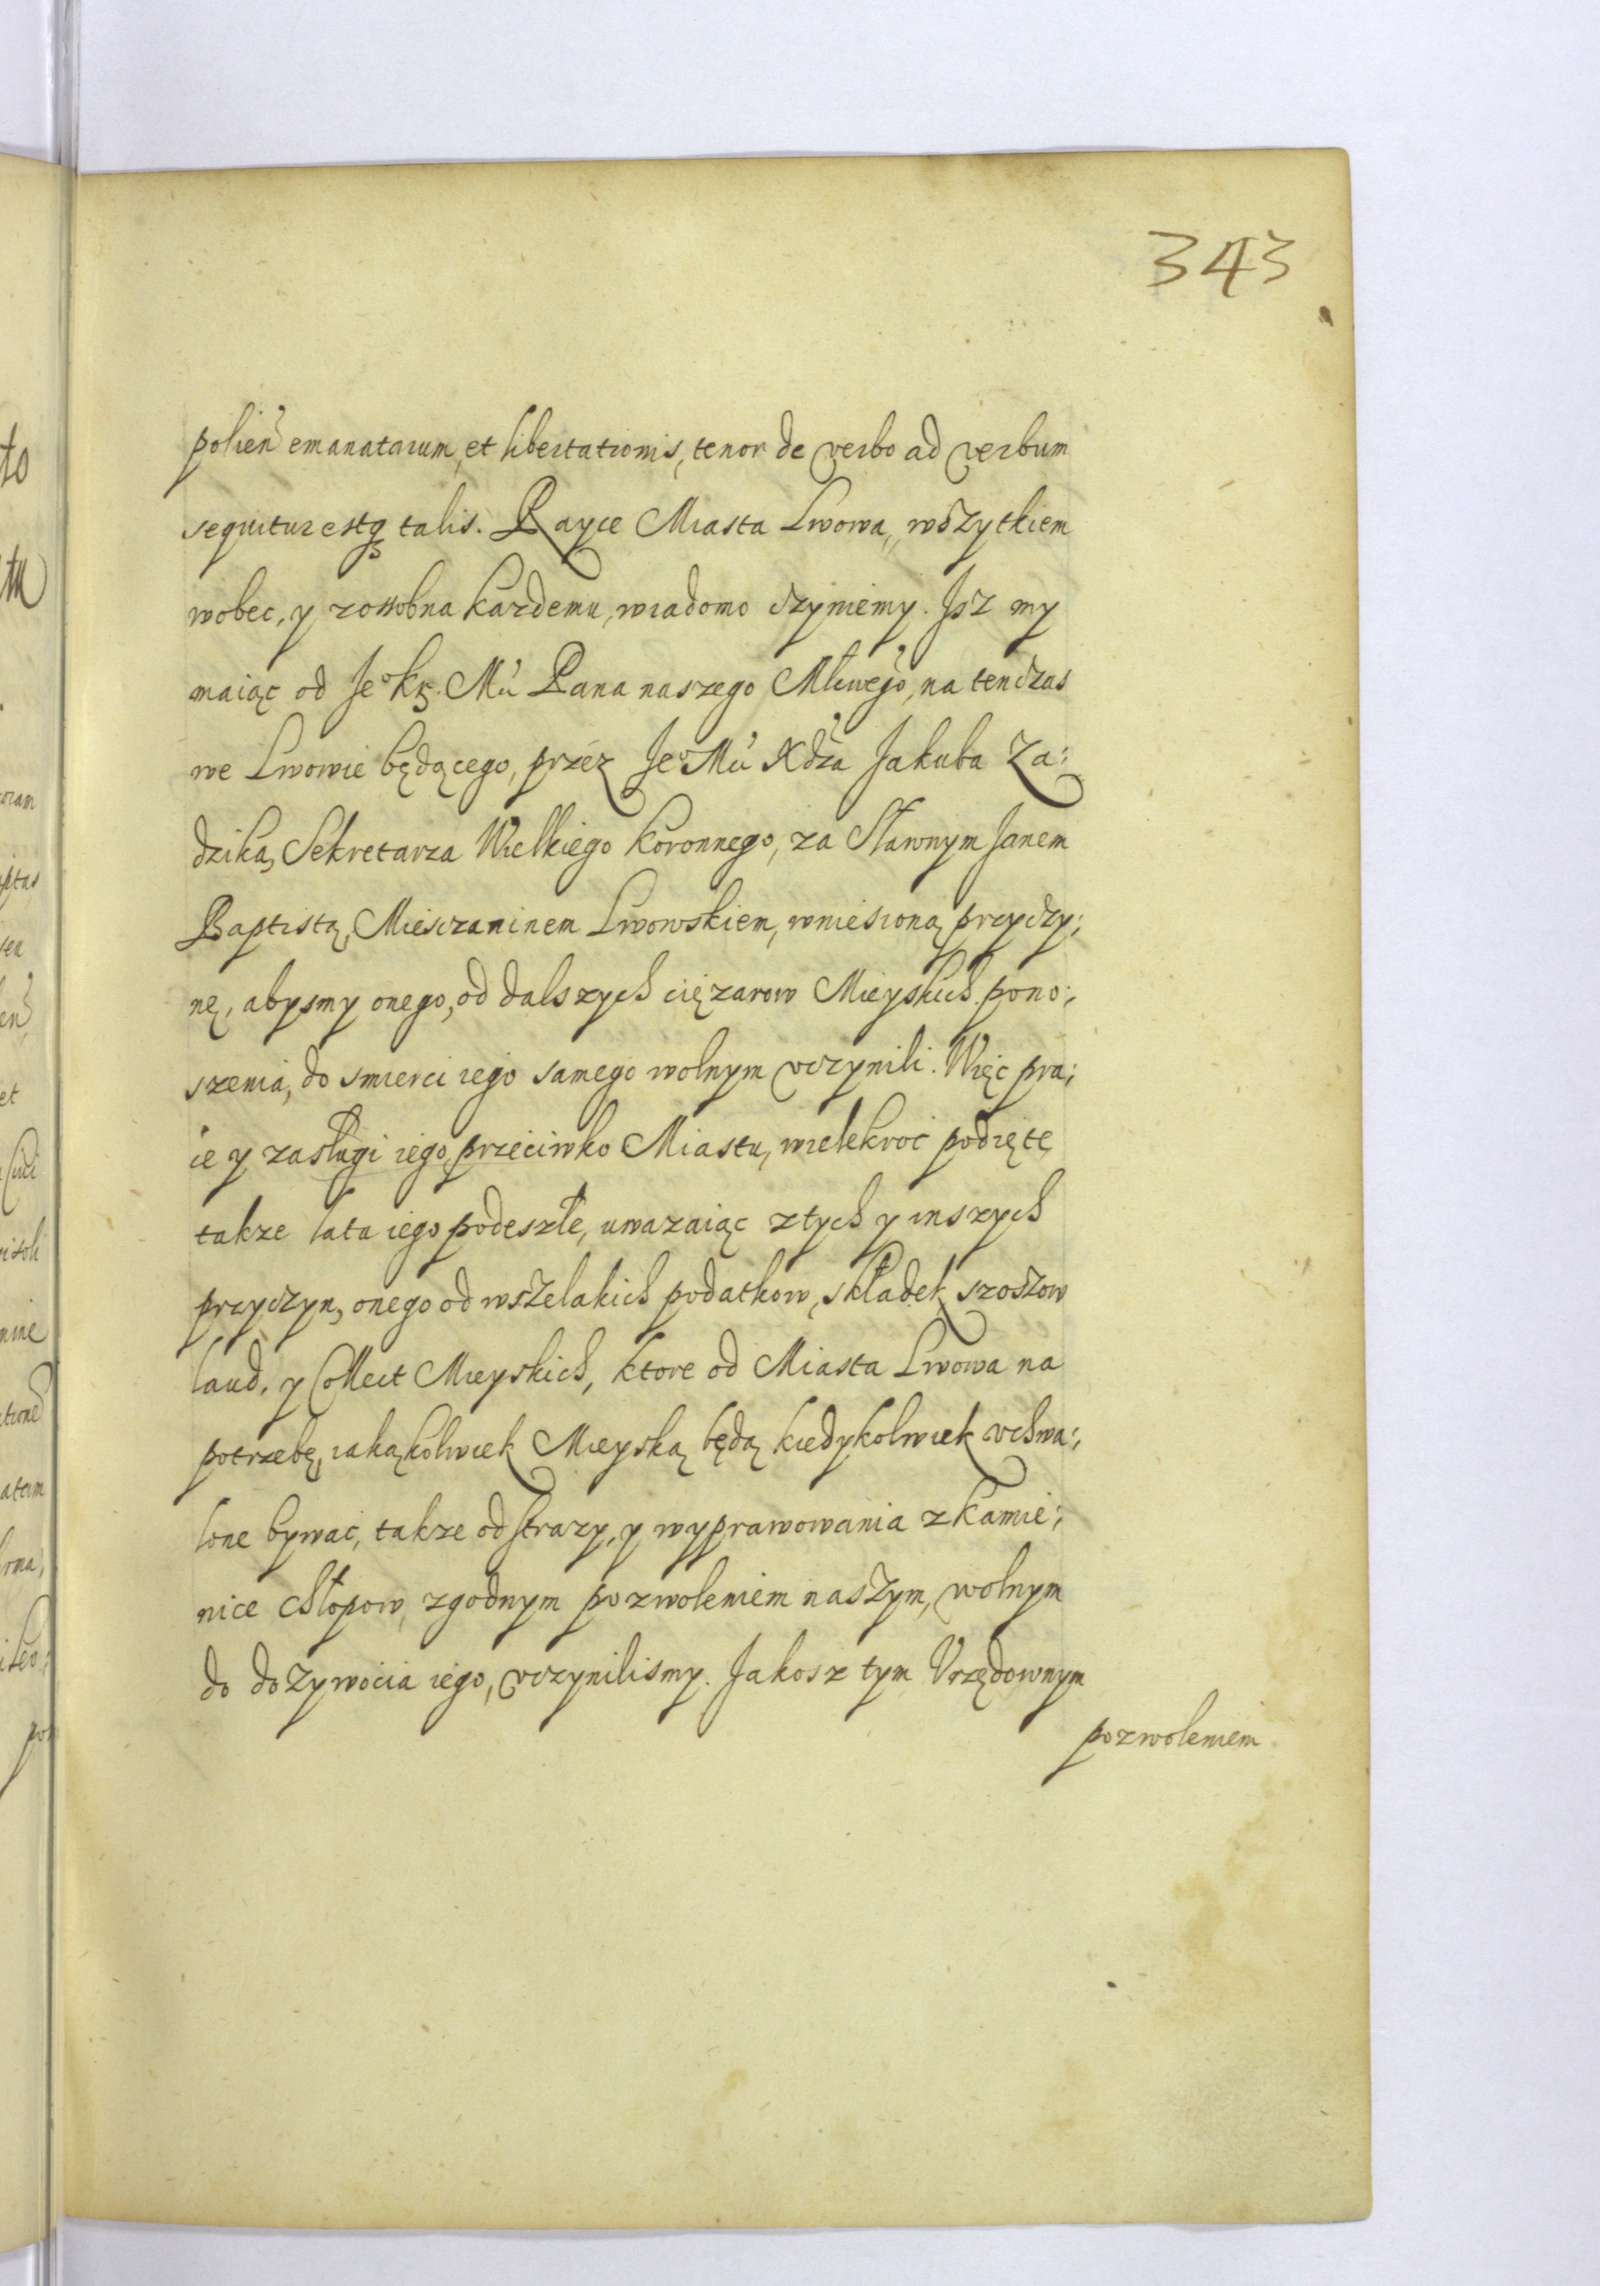 343
polień emanatarum, et libertationis, tenor de verbo ad verbum
sequitur estq3 talis. Rayce Miasta Lwowa, wszytkiem
wobec, y zossobna kazdemu, wiadomo czyniemy. Isz my
maiąc od Jeº Kr. Mći Pana naszego Młćiwego, na tenczas
we Lwowie będącego, przez Jeº Mći Xdza Jakuba Za:
dzika, Sekretarza Wielkiego Koronnego, za Sławnym Janem
Baptistą, Miesczaninem Lwowskiem, wniesioną przyczy:
nę, abysmy onego, od dalszych cięzarow Mieyskich pono:
szenia, do smierci iego samego wolnym vczynili. Więc pra:
ie y zasługi iego, przeciwko Miastu, wielekroć podięte
takze lata iego podeszłe, uwazaiąc z tych y inszych
przyczyn, onego od wszelakich podatkow, składek, szoszow
laud, y Collect Mieyskich, ktore od Miasta Lwowa na
potrzebę, iakąkolwiek Mieyską będą kiedykolwiek vchwa:
lone bywać, takze od strazy, y wyprawowania z kamie:
nice chłopow, zgodnym pozwoleniem naszym, wolnym
do dozywocia iego, vczynilismy. Jakosz tym Vrzędownym
pozwoleniem